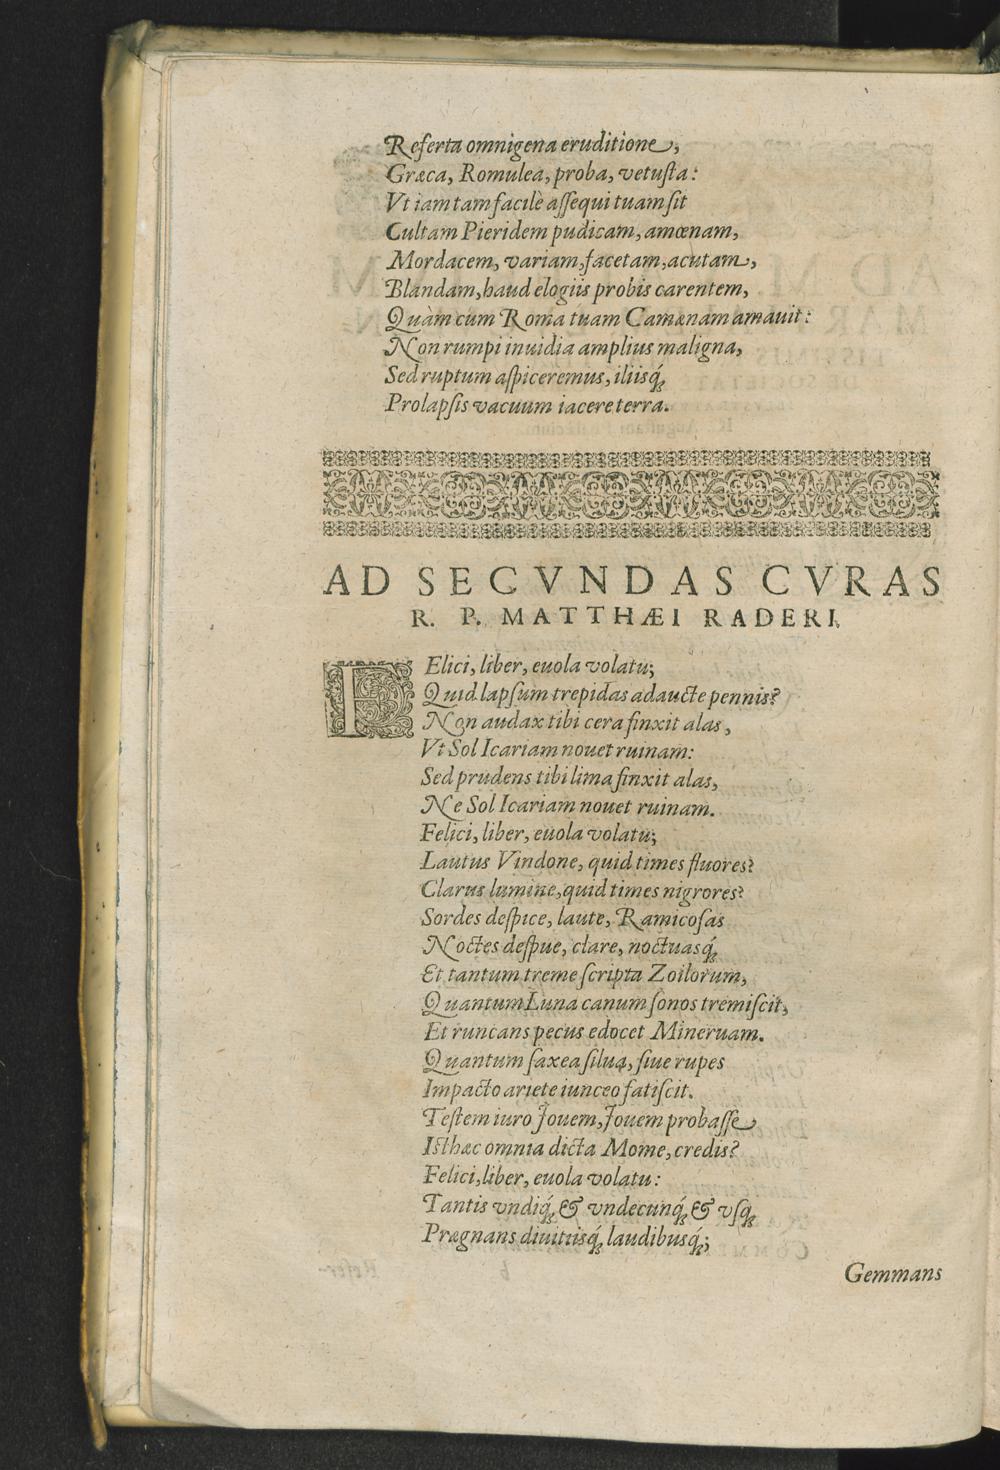 Referta omnigena eruditione,
Græca, Romulea, proba, vetuſta:
Vt iam tam facilè aſſequi tuam ſit
Cultam Pieridem pudicam, amœnam,
Mordacem, variam, facetam, acutam,
Blandam, haud elogiis probis carentem,
Quàm cum Roma tuam Camænam amauit:
Non rumpi inuidia amplius maligna,
Sed ruptum aſpiceremus, iliisq́;
Prolapſis vacuum iacere terra.
AD SECVNDAS CVRAS
R. P. MATTHÆI RADERI.
FElici, liber, euola volatu;
Quid lapſum trepidas adaucte pennis?
Non audax tibi cera finxit alas,
Vt Sol Icariam nouet ruinam:
Sed prudens tibi lima finxit alas,
Ne Sol Icariam nouet ruinam.
Felici, liber, euola volatu;
Lautus Vindone, quid times fluores?
Clarus lumine, quid times nigrores?
Sordes deſpice, laute, Ramicoſas
Noctes deſpue, clare, noctuasq́;
Et tantum treme ſcripta Zoilorum,
Quantum Luna canum ſonos tremiſcit,
Et runcans pecus edocet Mineruam.
Quantum ſaxea ſilua, ſiue rupes
Impacto ariete iunceo fatiſcit.
Teſtem iuro Jouem, Jouem probaſſe
Iſthæc omnia dicta Mome, credis?
Felici, liber, euola volatu:
Tantis vndiq́; & vndecunq́; & vſq́;
Prægnans diuitiisq́; laudibusq́;;
Gemmans